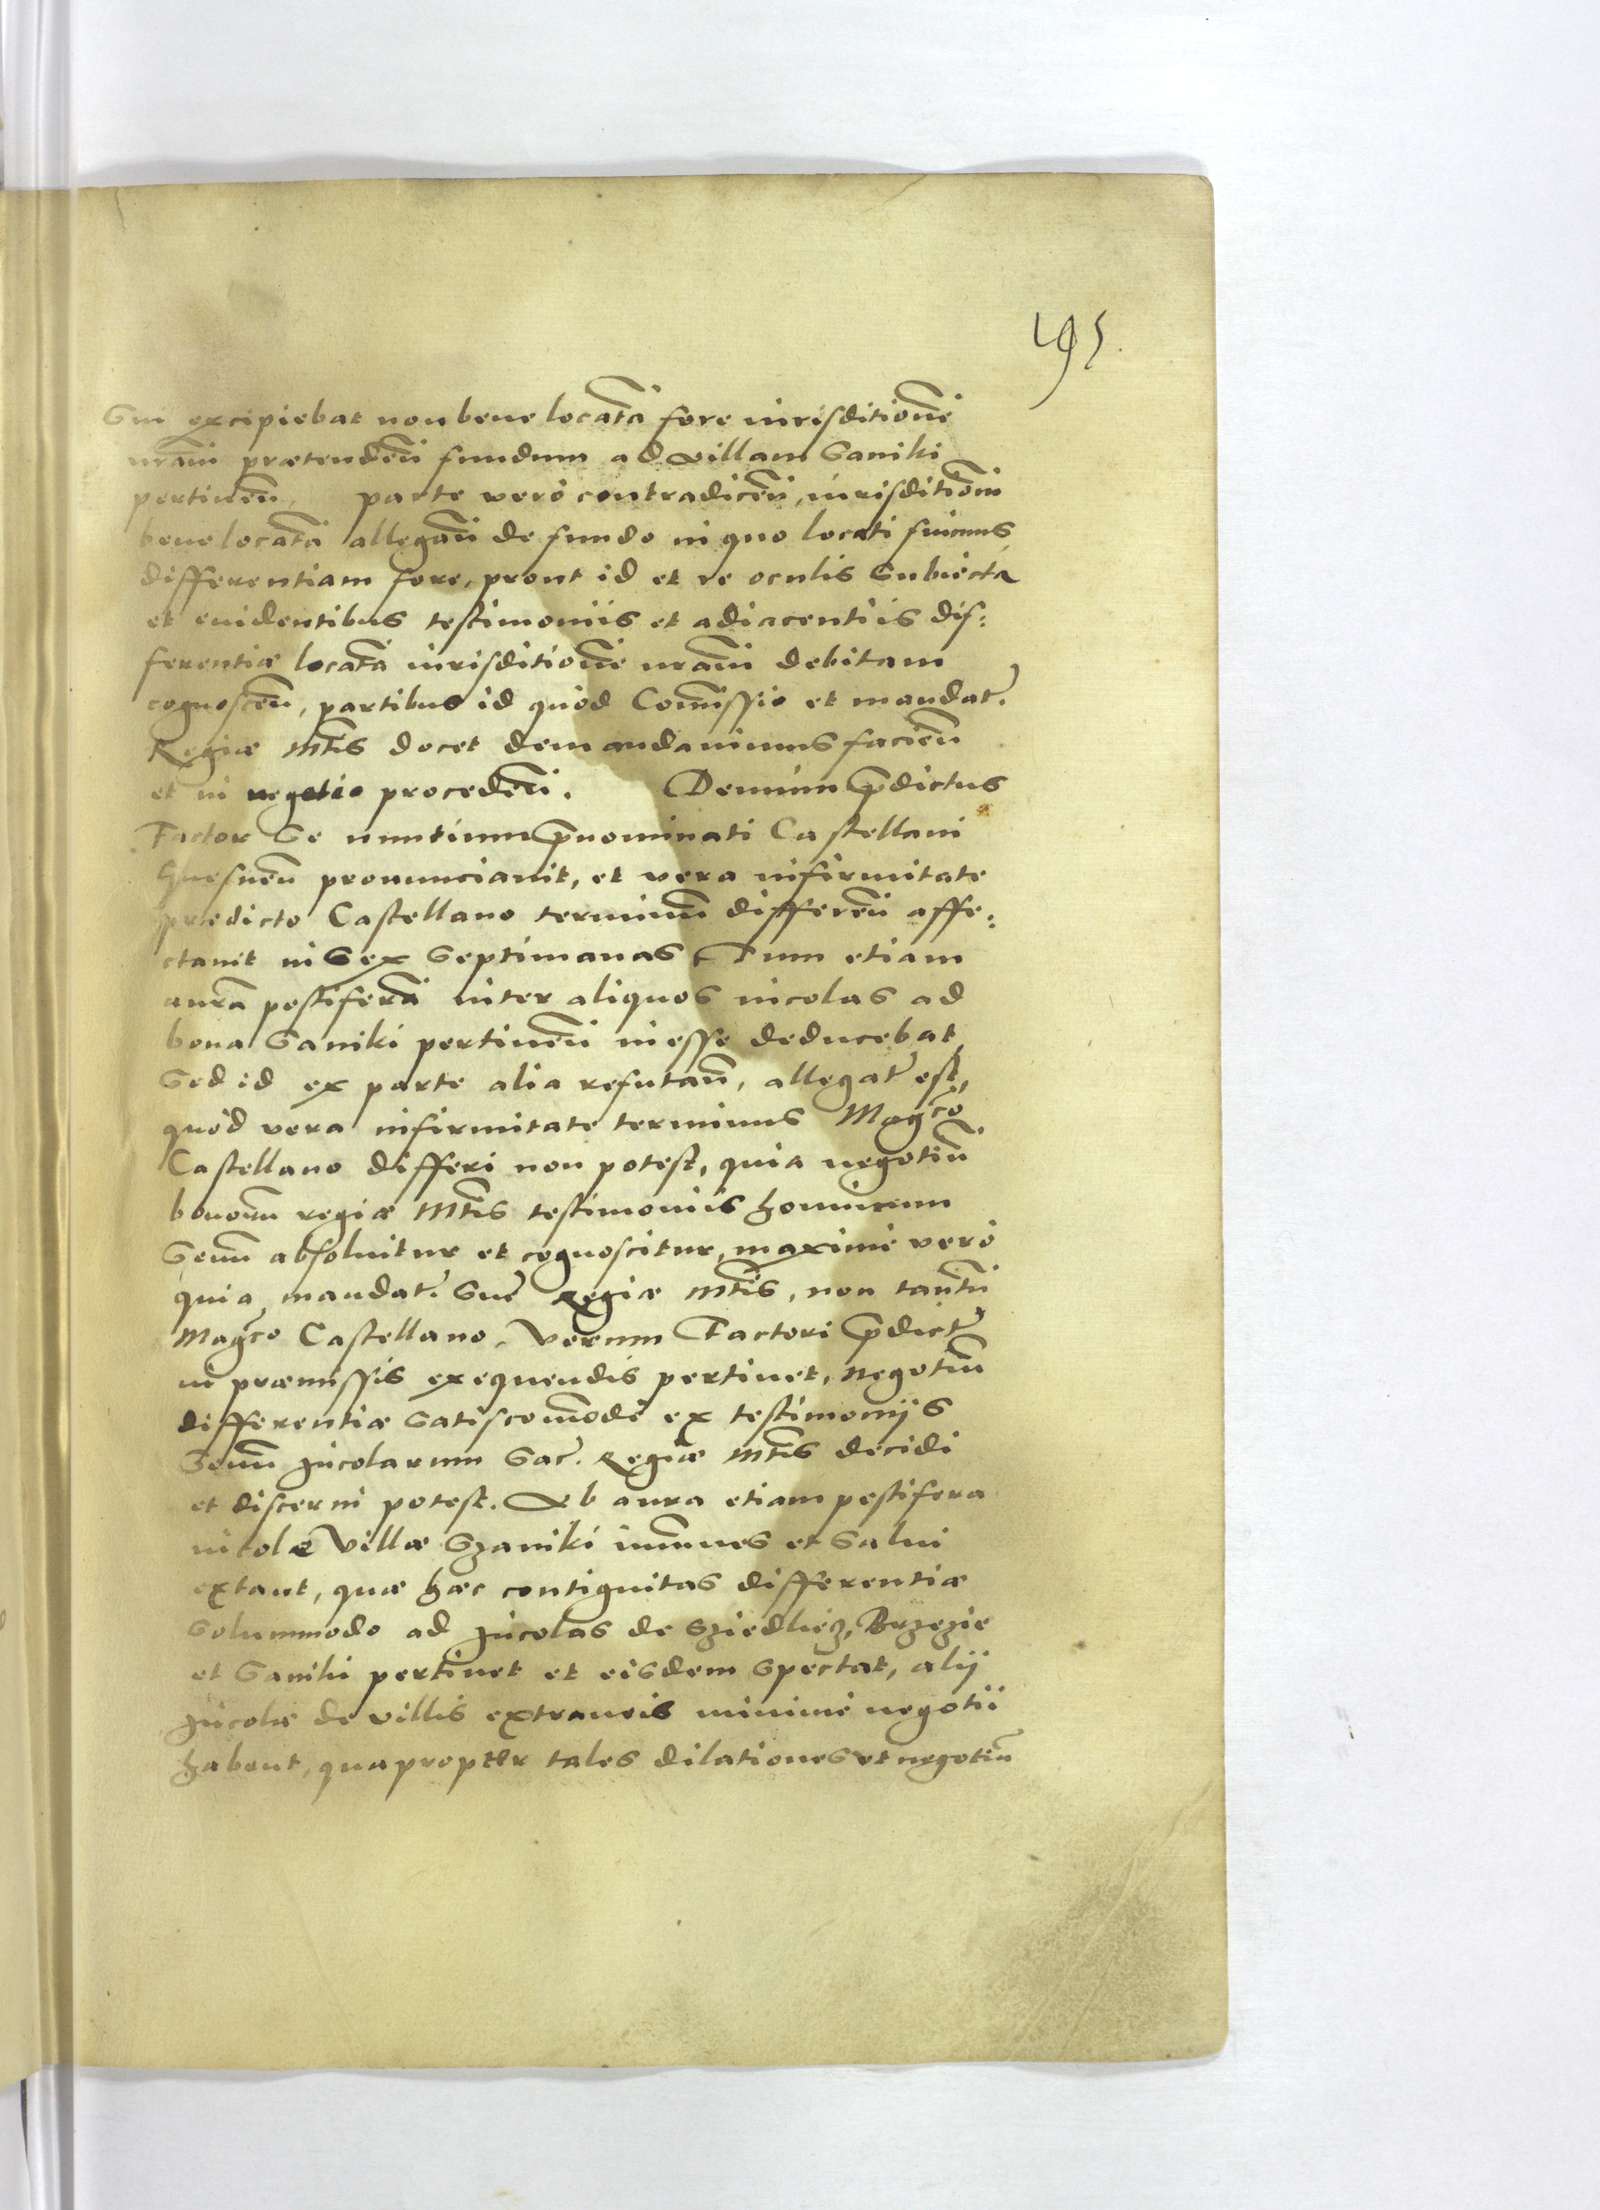 195.
Sui excipiebat non bene locatã fore iurisditionẽ
nrãm prætendeñ fundum ad villam Saniki
pertineñ, parte verò contradiceñ, iurisditiõm
bene locatã allegañ de fundo in quo locati fuimus
differentiam fore, prout id et re oculis subiecta
et euidentibus testimoniis et adiacentiis dif:
ferentiæ locatã iurisditionẽ nrãm debitam
cognosceñ, partibus id quod Com̃issio et mandat.
Regiæ Mtis docet demandauimus facieñ
et in negotio procedeñ. Demum p̃dictus
Factor se nuntium p̃nominati Castellani
Gnesneñ pronunciauit, et vera infirmitate
prædicto Castellano terminũ differeñ affe:
ctauit in sex septimanas Tum etiam
aurã pestiferã inter aliquos incolas ad
bona Saniki pertineñ inesse deducebat,
Sed id ex parte alia refutañ, allegat̃ est,
quòd vera infirmitate terminus Magco
Castellano differi non potest, quia negotiũ
bonorũ regiæ Mtis testimoniis hominum
senũ absoluitur et cognoscitur, maximè verò
quia mandat. Suẽ Regiæ Mtis, non tantũ
Magco Castellano, verum Factori p̃dict̃
in præmissis exequendis pertinet, negotiũ
differentiæ satis com̃odè ex testimonijs
Senũ Incolarum Sac. Regiæ Mtis decidi
et discerni potest. Ab aura etiam pestifera
incolæ Villæ Szaniki im̃unes et salui
extant, quæ hæc contiguitas differentiæ
Solummodo ad Incolas de Sziedliecz, Brzezie
et Saniki pertinet et eisdem spectat, alij
Incolæ de villis extraneis minimè negotii
habent, quapropter tales dilationes et negotiũ